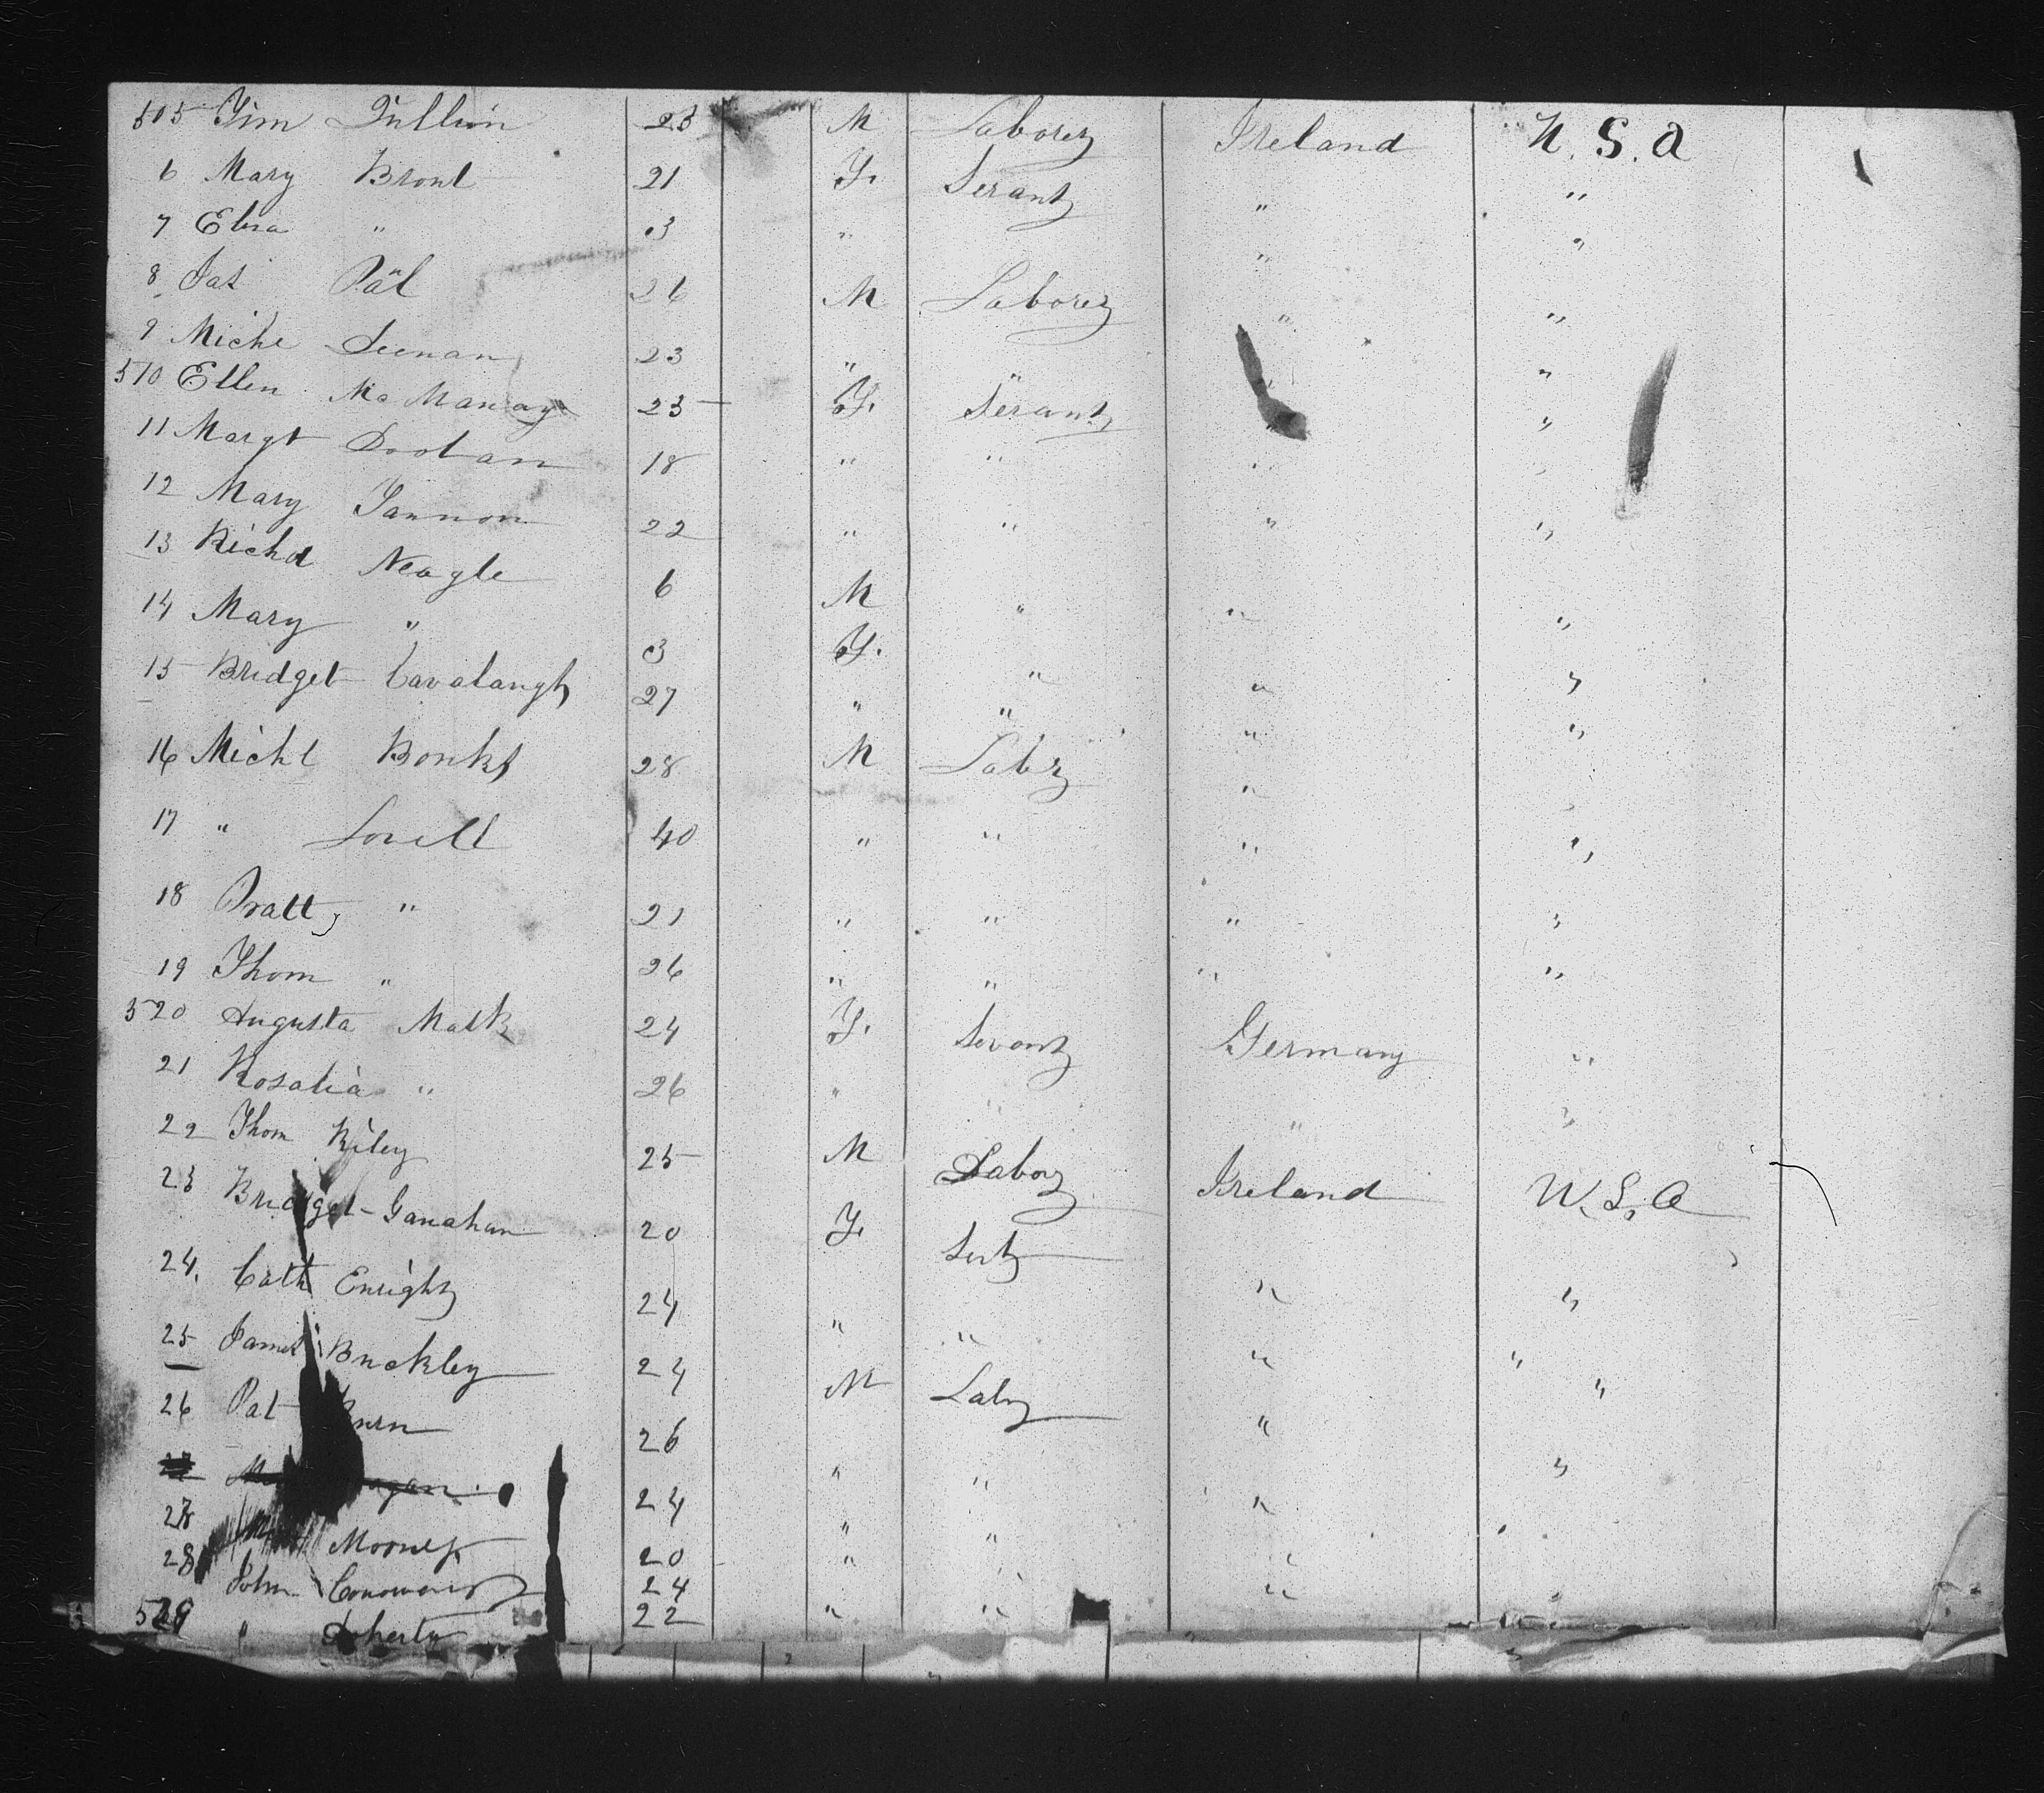 505 Tim Tullin 23 M Laborer Ireland U. S. A
6 Mary Bront 21 F. Serant " "
7 Eliza " 3 " " "
8 Pat Pål 26 M Laborer " "
9 Miche Leenan 23 " " "
510 Ellen Mc Manay 25 F. Serant " "
11 Margt Doolan 18 " " " "
12 Mary Fannon 22 " " " "
13 Richd Neagle 6 M " " "
14 Mary " 3 F. " " "
15 Bridget Cavalangh 27 " " " "
16 Michl Bonks 28 M Labr " "
17 " Lovell 40 " " " "
18 Pratt, " 21 " " " "
19 Thom " 26 " " " "
520 Augusta Malk 24 F. Servant Germany "
21 Rosalia " 26 " " " "
22 Thom Riley 25 M Labor Ireland U. S. A
23 Bridget Ganahan 20 F. Sert
24. Cath Enright 24 " " " "
25 James Buckley 24 M Labr " " "
26 Pat 26 " " " "
24 " " "
27 Mooney 20 " "
28 John 24 "
529 " Doherty 22 " "